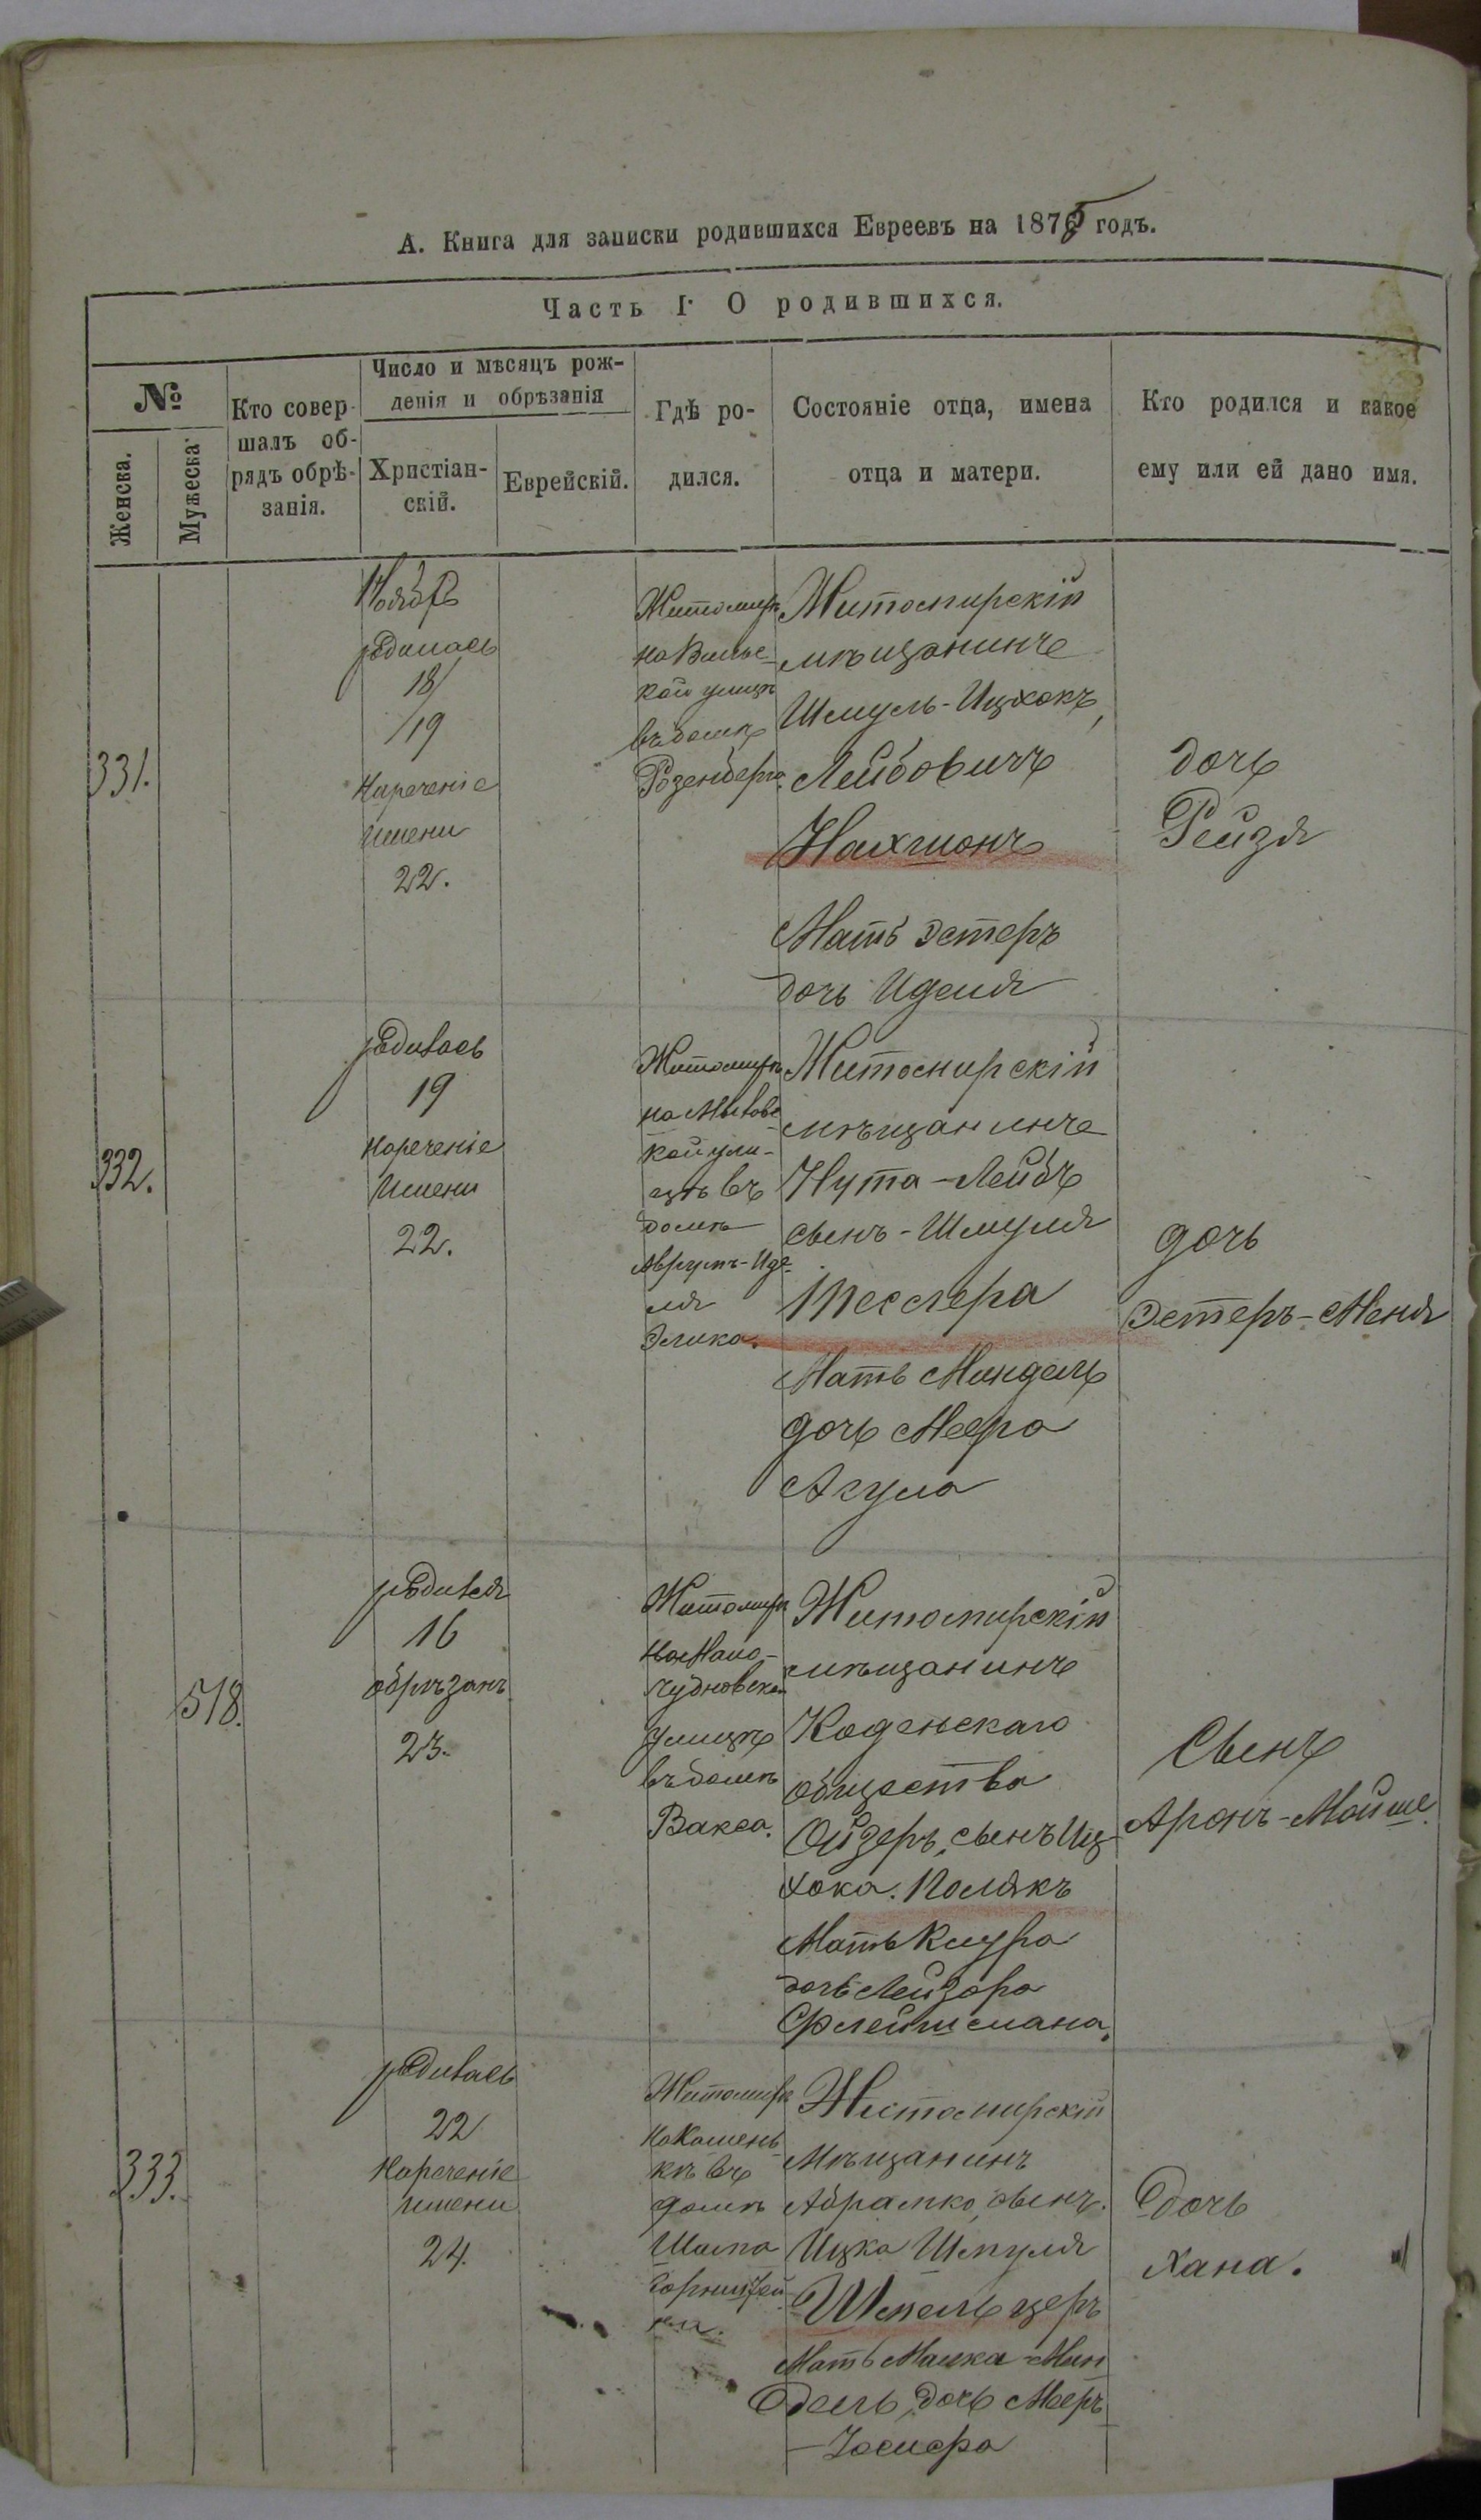 А. Книга для записки родившихся Евреевъ на 1875 годъ.
Часть I. О родившихся.
№
Женска.
Мужеска
Кто совер-
шалъ об-
рядъ обрѣ-
занія.
Число и мѣсяцъ рож-
денія и обрѣзанія
Христіан-
скій.
Еврейскій.
Гдѣ ро-
дился.
Состояніе отца, имена
отца и матери.
Кто родился и какое
ему или ей дано имя.
331.
Ноябрь
родилась
18/
/19
Нареченіе
имени
22.
Житомирѣ
на Вильс-
кой улицѣ
въ домѣ
Розенберга.
Житомирскій
мѣщанинъ
Шмуль-Ицхокъ
Лейбовичъ
Нахманъ
Мать Эстеръ
дочь Иделя
дочь
Рейзя
332.
родилась
19
нареченіе
имени
22.
Житомирѣ
на
кой ули-
цѣ въ
домѣ
Аврумъ-Иде-
ля
Элика.
Житомирскій
мѣщанинъ
Нута-Лейбъ
сынъ-Шмуля
Тесслера
Мать Миндель
дочь Меера
Акула
дочь
Эстеръ-Меня
518.
родился
16
обрѣзанъ
23.
Житомирѣ
на Мало-
Чудновской
улицѣ
въ домѣ
Вакса.
Житомирскій
мѣщанинъ
Коденскаго
общества
Ойзеръ, сынъ Иц-
хока. Полякъ
Мать Клура
дочь Лейзора
Флейшмана.
Сынъ
Аронъ-Мойше.
333.
родилась
22
Нареченіе
имени
24.
Житомирѣ
на Камень-
кѣ въ
домѣ
Шама
Житомирскій
Мѣщанинъ
Абрамко, сынъ.
Ицка Шмуля
Шмельцеръ
Мать Малка-Мин
дель, дочь Меер
дочь
Хана.